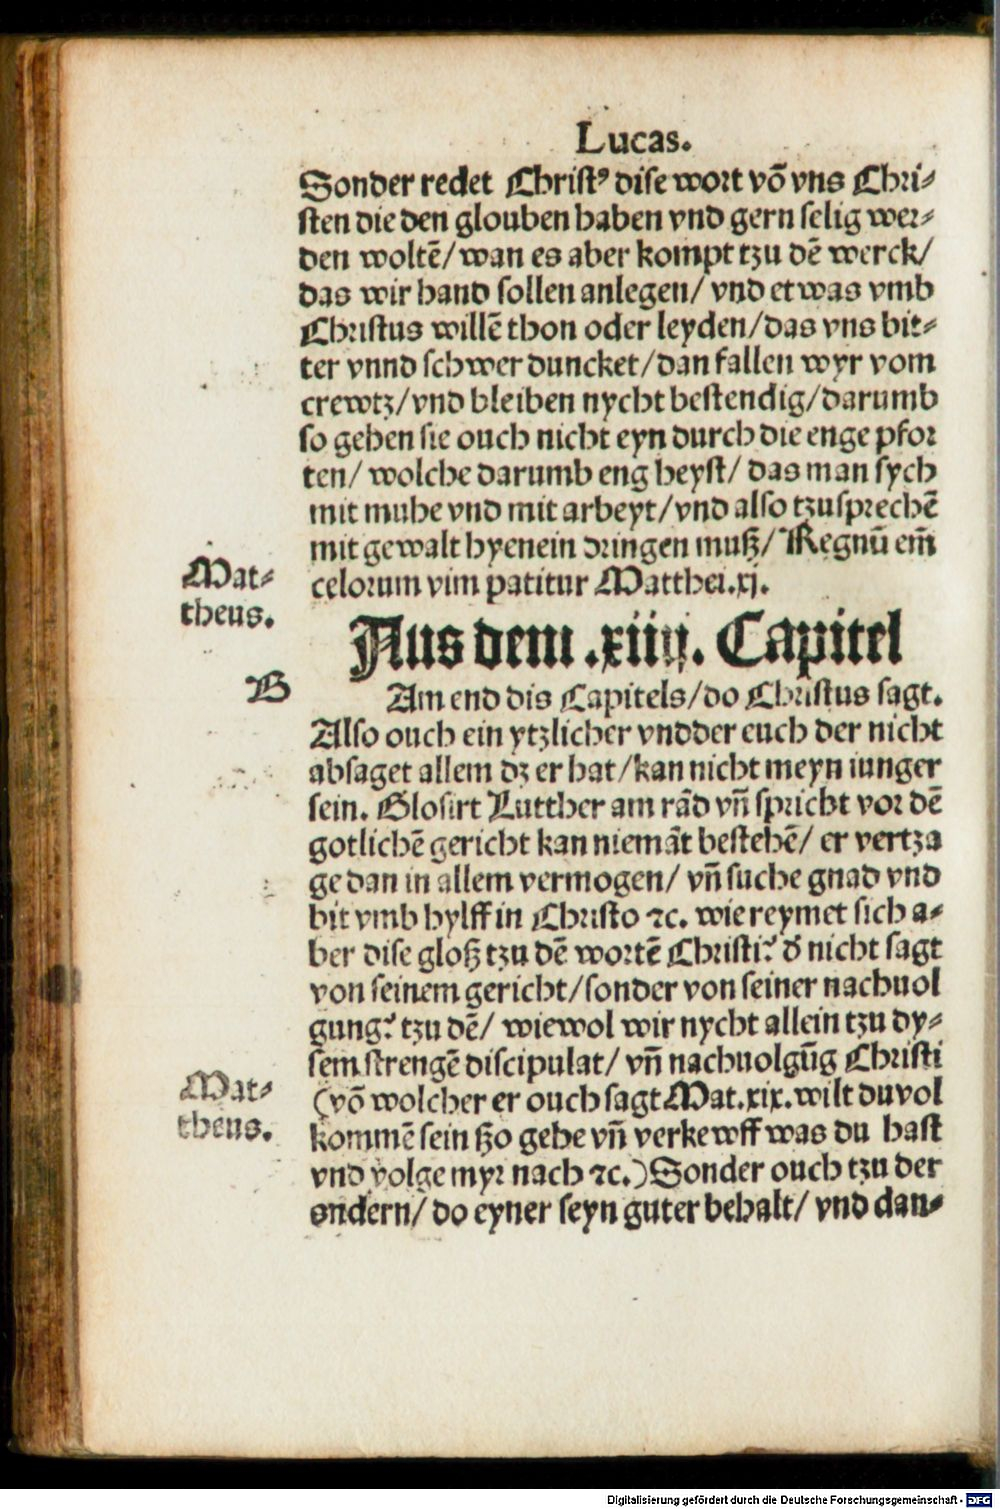 Lucas.
Sonder redet Christꝰ dise wort võ vns Chri⸗
sten die den glouben haben vnd gern selig wer⸗
den woltẽ/ wan es aber kompt tzu dẽ werck/
das wir hand sollen anlegen/ vnd etwas vmb
Christus willẽ thon oder leyden/ das vns bit⸗
ter vnnd schwer duncket/ dan fallen wyr vom
crewtz/ vnd bleiben nycht bestendig/ darumb
so gehen sie ouch nicht eyn durch die enge pfor
ten/ wolche darumb eng heyst/ das man sych
mit muhe vnd mit arbeyt/ vnd also tzusprechẽ
mit gewalt hyenein dringen muß/ Regnũ em̃
Mat⸗
theus.
celorum vim patitur Matthei.xj.
Aus dem .xiiij. Capitel
B
Am end dis Capitels/ do Christus sagt.
Also ouch ein ytzlicher vndder euch der nicht
absaget allem dz er hat/ kan nicht meyn iunger
sein. Glosirt Lutther am rãd vñ spricht vor dẽ
gotlichẽ gericht kan niemãt bestehẽ/ er vertza
ge dan in allem vermogen/ vñ suche gnad vnd
bit vmb hylff in Christo ⁊c. wie reymet sich a⸗
ber dise gloß tzu dẽ wortẽ Christi? d̕ nicht sagt
von seinem gericht/ sonder von seiner nachuol
gung? tzu dẽ/ wiewol wir nycht allein tzu dy⸗
sem strengẽ discipulat/ vñ nachuolgũg Christi
Mat⸗
theus.
(võ wolcher er ouch sagt Mat.xix. wilt du vol
kommẽ sein ßo gehe vñ verkewff was du hast
vnd volge myr nach ⁊c.) Sonder ouch tzu der
andern/ do eyner seyn guter behalt/ vnd dan⸗
Digitalisierung gefördert durch die Deutsche Forschungsgemeinschaft - DFG